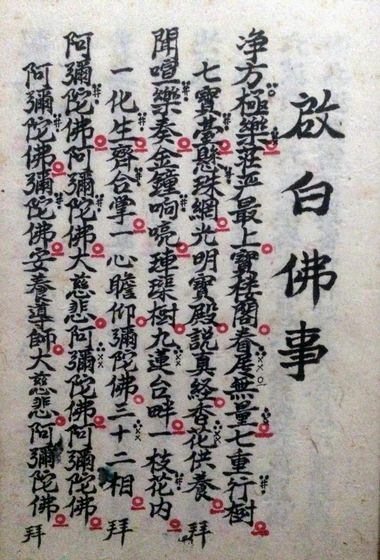 啟白佛事
净方極樂莊严最上寶楼閣眷居無量七重行樹
七寶莹懸珠網光明寶殿說真経香花供養 拜
聞喧樂奏金鐘响喨硨磲樹九蓮台畔一枝花内
一化生齊合掌一心瞻仰彌陀佛三十二相 拜
阿彌陀佛阿彌陀佛大慈悲阿彌陀佛阿彌陀佛
阿彌陀佛彌陀佛安養導師大慈悲阿彌陀佛 拜